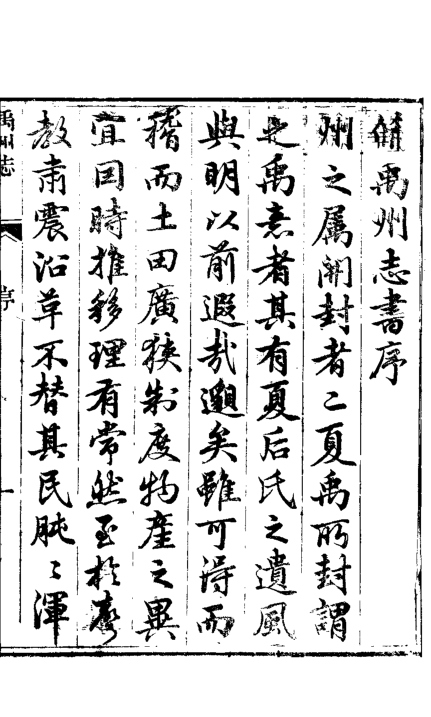 脩禹州志書序
州之属開封者二夏禹所封謂
之禹意者其有夏后氏之遺風
與明以前遐哉邈矣雖可得而
稽而土田廣狹制度物產之異
宜因時推移理有常然至於
教肅震沿革不替其民肫〻渾
禹州志
序
一